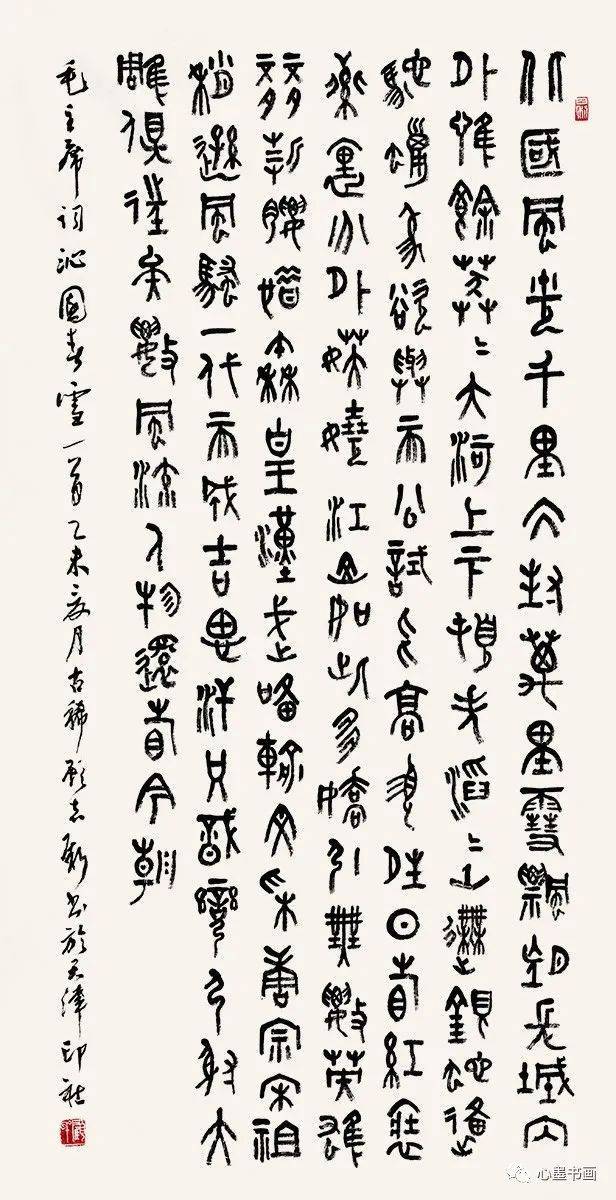 北國風光千里冰封萬里雪飄望長城內
外惟餘莽〻大河上下頓失滔〻山舞銀蛇原
馳蠟象欲與天公試比高須晴日看紅裝
素裹分外妖嬈江山如此多嬌引無數英雄
競折腰惜秦皇漢武略輸文采唐宗宋祖
稍遜風騷一代天成吉思汗只識彎弓射大
雕俱往矣數風流人物還看今朝
毛主席词沁園春雪一首乙未夏月古稀顧志新书於天津印社
心墨书画